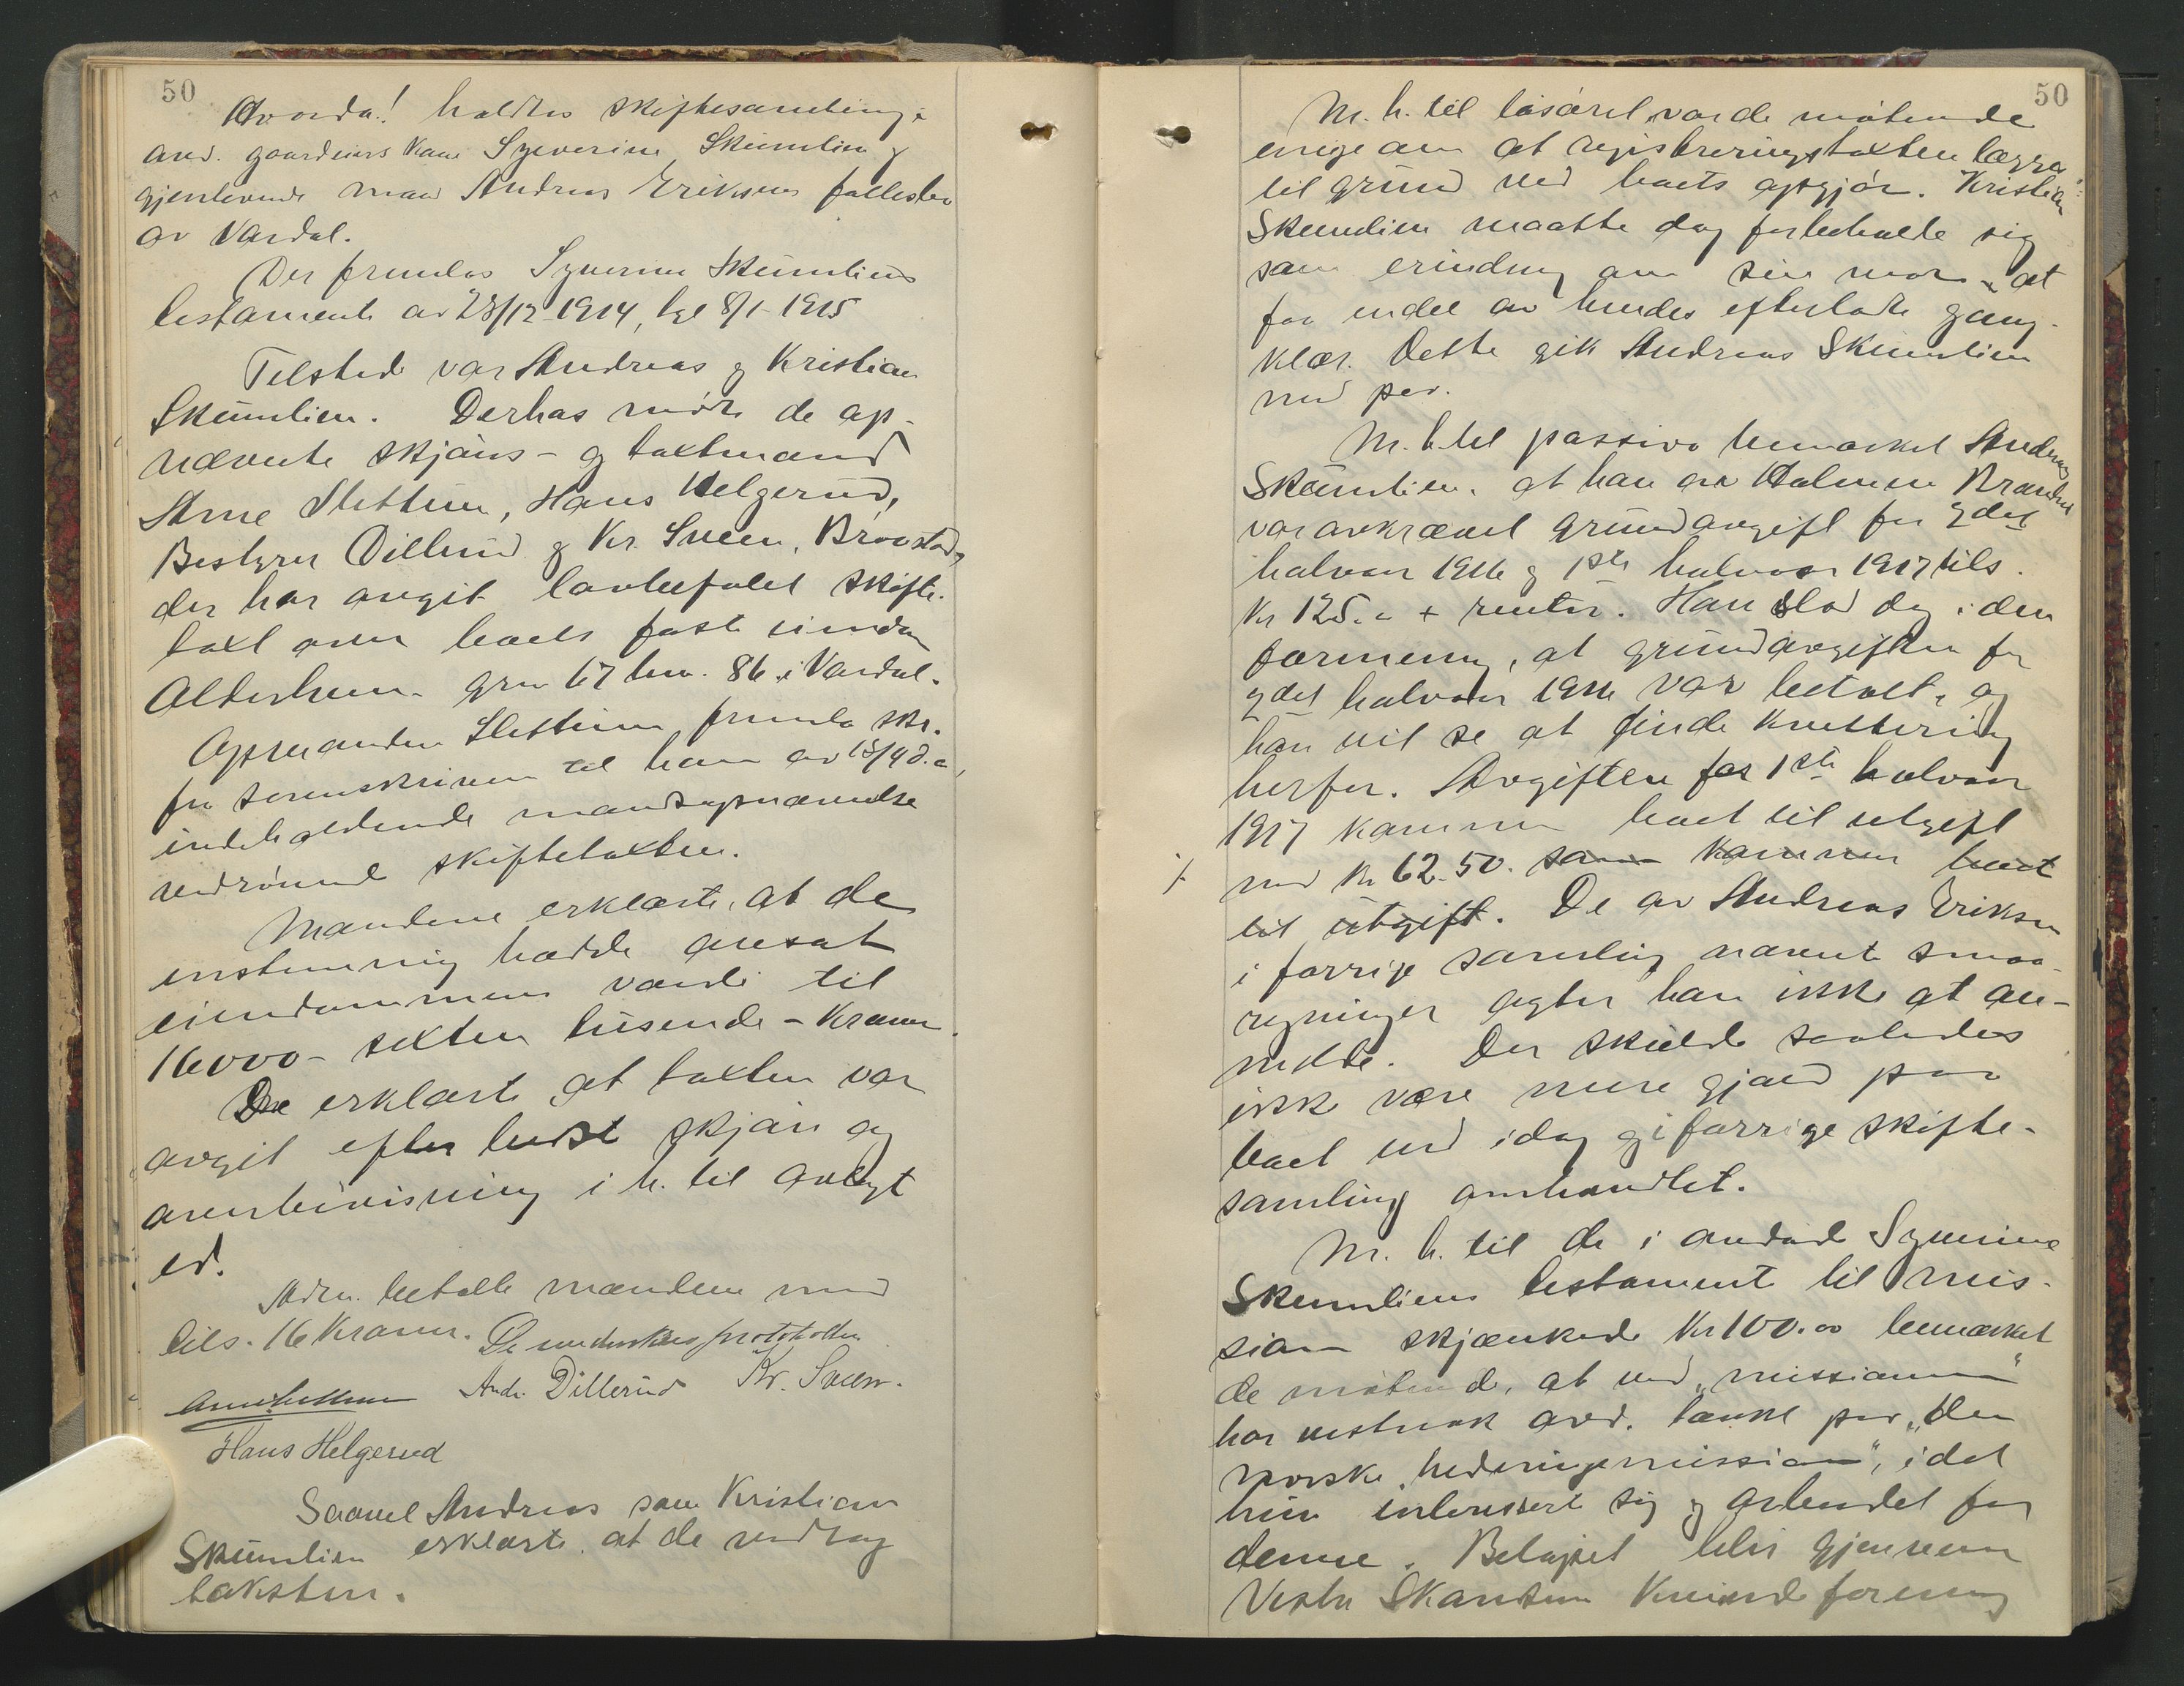 50
Hvorda! holdtes skiftesamling i
avd. gaardmans kone Syverine Skumlien g
gjenlevende mand Andreas Eriksens fællesbo
av Vardal.
Der fremlas Syverine Skumliens
testamente av 28/12 1914, tgl 8/1 1915
Tilstede var Andreas g Kristian
Skumlien. Derhos møtte de op-
nævnte skjøns- g taxtmænd
Arne Slettum, Hans Helgerud,
Bestyrer Dillerud g Kr. Sveen, Braastad,
der har avgit lovbefalet skifte-
taxt over boets faste eiendom
Alderheim gnr 67 bnr. 86 i Vardal.
Opmanden Slettum fremla skr.
fra sorenskriveren til ham av 15/9 d.a,
indeholdende mandsopnævnelse
vedrørende skiftetaxten.
Mændene erklærte, at de
enstemmig hadde ansat
eiendommens værdi til
16000 - sexten tusende - Kroner.
De erklærte at taxten var
avgit efter bedst skjøn og
overbevisning i h. til avlagt
ed.
Adm. betalte mændene med
tils. 16 Kroner. De underskrev protokollen
Arne Slettum Andr. Dillerud Kr. Sveen.
Hans Helgerud
Saavel Andreas som Kristian
Skumlien erklærte, at de vedtog
taksten.
50
M. h. til løsøret var de møtende
enige om at registreringstaxten lægges
til grund ved boets opgjør. Kristian
Skumlien maatte dog forbeholde sig
som erindring om sin mor at
faa endel av hendes efterladte gang-
klær. Dette gik Andreas Skumlien
med paa.
M. h. til passiva bemærket Andreas
Skumlien, at han av Halmen Brandt
var avkrævet grundavgift for 2det
halvaar 1916 g 1ste halvaar 1917 tils.
Kr 125.- + renter. Han stod dog i den
formening, at grundavgiften for
2det halvaar 1916 var betalt, og
han vil se at finde kvittering
herfor. Avgiften for 1ste halvaar
1917 kommer boet til utgift
med Kr 62.50. som kommer boet
til utgift. De av Andreas Eriksen
i forrige samling nævnte smaa-
regninger agter han ikke at an-
melde. Der skulde saaledes
ikke være mere gjæld paa
boet end idag g i forrige skifte-
samling omhandlet.
M. h. til de i avdøde Syverine
Skumliens testament til mis-
sion skjænkede Kr 100.00 bemærket
de møtende, at ved „missionen"
har vistnok avd. tænkt paa „den
norske hedningemission", idet
hun interessert sig g arbeidet for
denne. Beløpet blir gjennem
Vestre Skandsen Kvindeforening